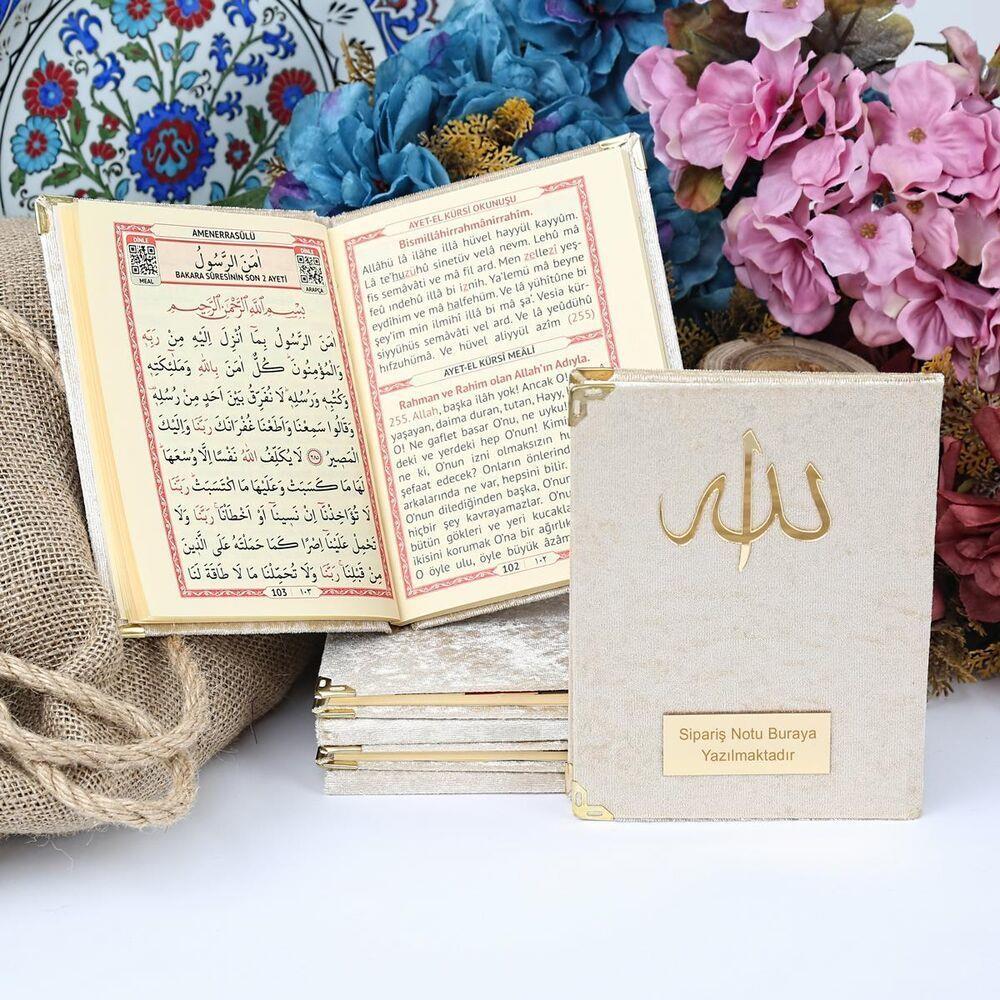 AMENERRASÛLÜ
DİNLE
MEAL
اٰمَنَ الرَّسُولُ
BAKARA SÛRESİNİN SON 2 AYETİ
DİNLE
ARAPÇA
بِسْمِ اللّٰهِ الرَّحْمٰنِ الرَّحِيمِ
اٰمَنَ الرَّسُولُ بِمَٓا اُنْزِلَ اِلَيْهِ مِنْ رَبِّهٖ
وَالْمُؤْمِنُونَۜ كُلٌّ اٰمَنَ بِاللّٰهِ وَمَلٰٓئِكَتِهٖ
وَكُتُبِهٖ وَرُسُلِهٖۜ لَا نُفَرِّقُ بَيْنَ اَحَدٍ مِنْ رُسُلِهٖ
وَقَالُوا سَمِعْنَا وَاَطَعْنَا غُفْرَانَكَ رَبَّنَا وَاِلَيْكَ
الْمَصِيرُ ﴿٢٨٥﴾ لَا يُكَلِّفُ اللّٰهُ نَفْسًا اِلَّا وُسْعَهَا
لَهَا مَا كَسَبَتْ وَعَلَيْهَا مَا اكْتَسَبَتْ رَبَّنَا
لَا تُؤَاخِذْنَٓا اِنْ نَسِينَٓا اَوْ اَخْطَأْنَا رَبَّنَا وَلَا
تَحْمِلْ عَلَيْنَٓا اِصْرًا كَمَا حَمَلْتَهُ عَلَى الَّذِينَ
مِنْ قَبْلِنَا رَبَّنَا وَلَا تُحَمِّلْنَا مَا لَا طَاقَةَ لَنَا
103 ١٠٣
AYET-EL KÜRSİ OKUNUŞU
Bismillâhirrahmânirrahim.
Allâhü lâ ilâhe illâ hüvel hayyül kayyûm.
Lâ te'huzühû sinetüv velâ nevm. Lehû mâ
fis semâvâti ve mâ fil ard. Men zellezi yeş-
feu ındehû illâ bi iznih. Ya'lemü mâ beyne
eydîhim ve mâ halfehüm. Ve lâ yühîtûne bi
şey'im min ilmihî illâ bi mâ şa'. Vesia kür-
siyyühüs semâvâti vel ard. Ve lâ yeûdühû
hıfzuhümâ. Ve hüvel aliyyül azîm (255)
AYET-EL KÜRSİ MEALİ
Rahman ve Rahim olan Allah'ın Adıyla.
255. Allah, başka ilâh yok! Ancak O
yaşayan, daima duran, tutan, Hayy,
O! Ne gaflet basar O'nu, ne uyku!
deki ve yerdeki hep O'nun! Kimin
ne ki, O'nun izni olmaksızın hu
şefaat edecek? Onların önlerind
arkalarında ne var, hepsini bilir.
O'nun dilediğinden başka, O'nun
hiçbir şey kavrayamazlar. O'nun
bütün gökleri ve yeri kucakla
ikisini korumak O'na bir ağırlık
O öyle ulu, öyle büyük âzâm
102 ١٠٢
الله
Sipariş Notu Buraya
Yazılmaktadır